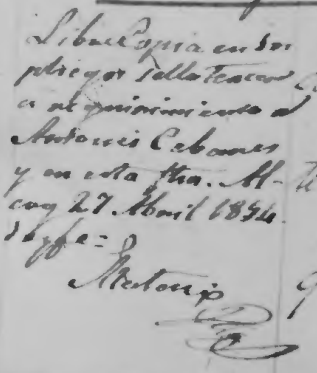 Libré Copia en dos
pliegos Sello Tercero
a requirimiento de
Antonio Cabanes
y en esta fha. Al-
coy 27 Abril 1894.
doy fe =